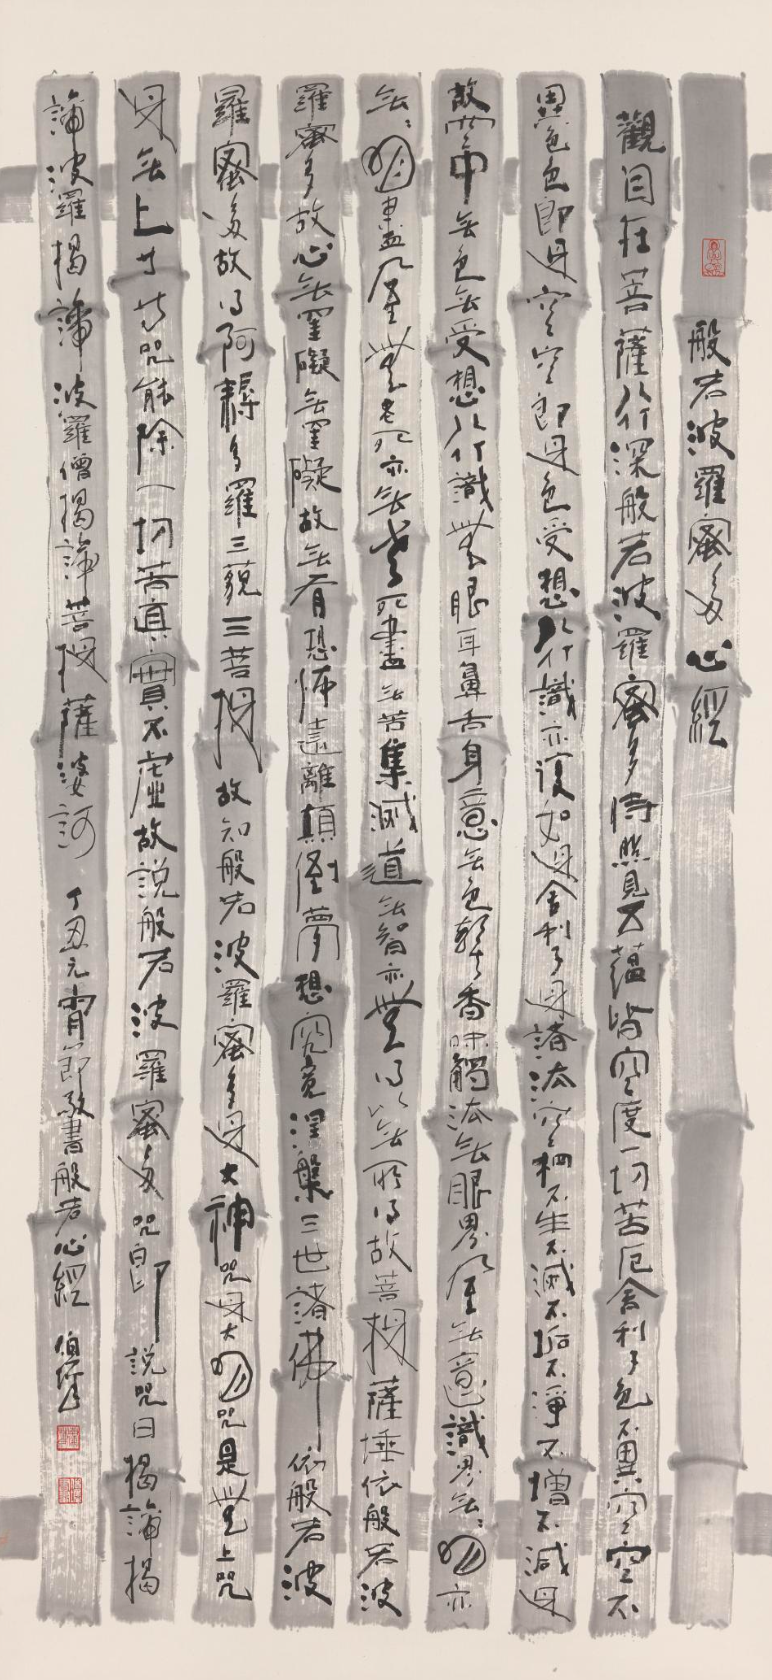 般若波羅蜜多心經
觀自在菩薩行深般若波羅蜜多時照見五蘊皆空度一切苦厄舍利子色不異空空不
異色色即是空空即是色受想行識亦復如是舍利子是諸法空相不生不滅不垢不淨不增不減是
故空中無色無受想行識無眼耳鼻舌身意無色聲香味觸法無眼界乃至無意識界無〻明亦
無〻明盡乃至無老死亦無老死盡無苦集滅道無智亦無得以無所得故菩提薩埵依般若波
羅蜜多故心無罣礙無罣礙故無有恐怖遠離顛倒夢想究竟涅槃三世諸佛依般若波
羅蜜多故得阿耨多羅三藐三菩提故知般若波羅蜜多是大神咒是大明咒是無上咒
是無上等等咒能除一切苦真實不虛故說般若波羅蜜多咒即說咒曰揭諦揭
諦波羅揭諦波羅僧揭諦菩提薩婆訶 丁丑元宵節敬書般若心經